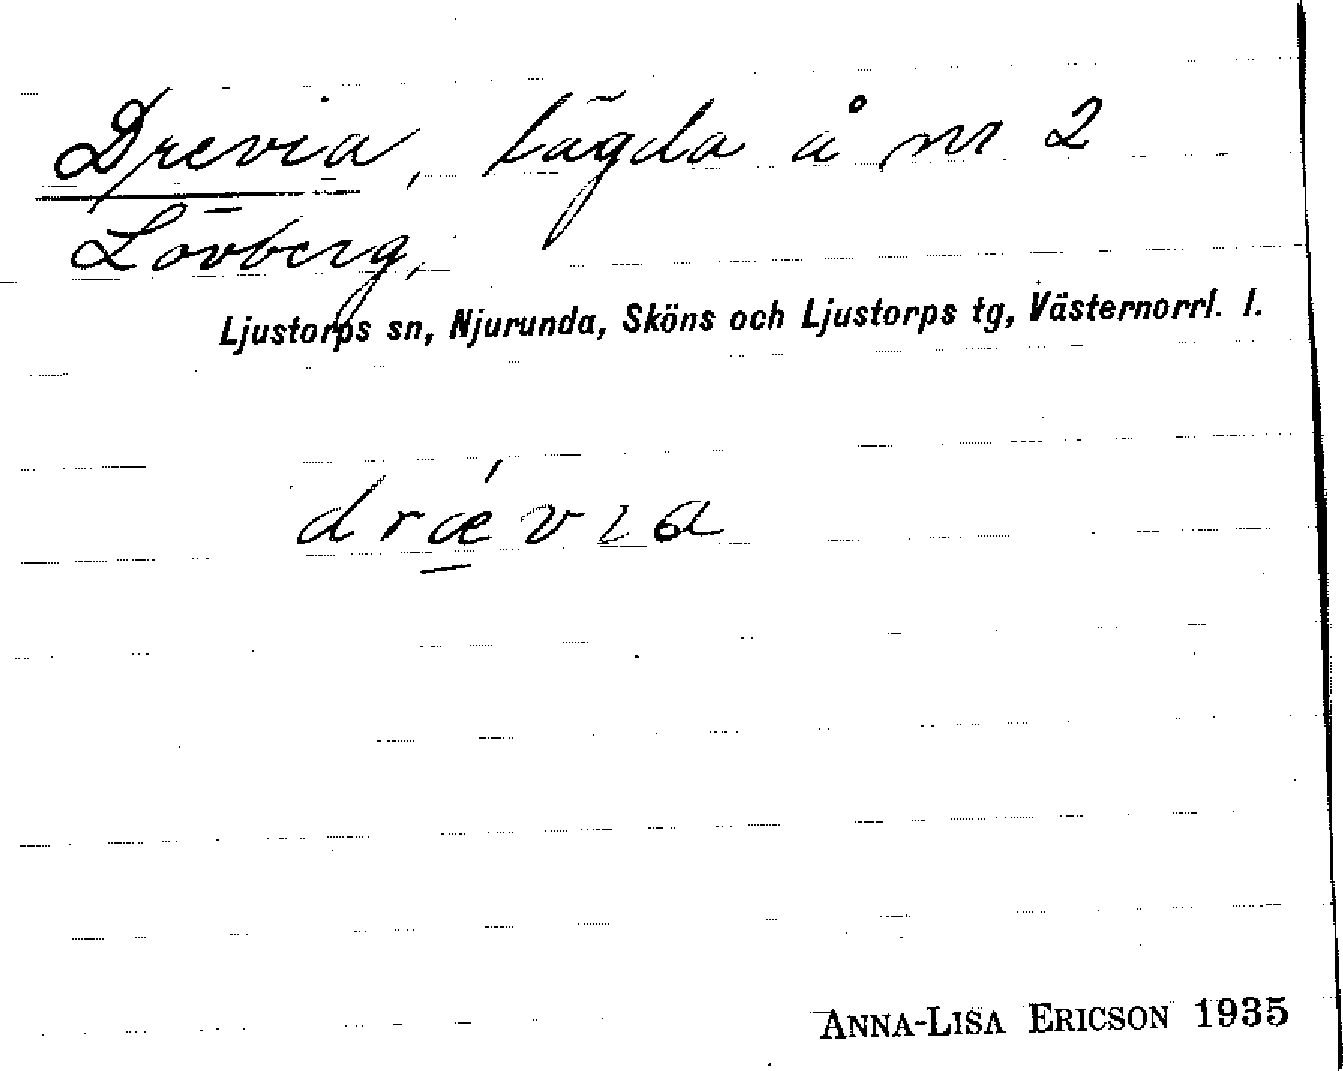 Drevia, lägda å nr 2
Lövberg,
Ljustorps sn, Njurunda, Sköns och Ljustorps tg, Västernorrl. l.
drǽvıa
ANNA-LISA ERICSON 1935